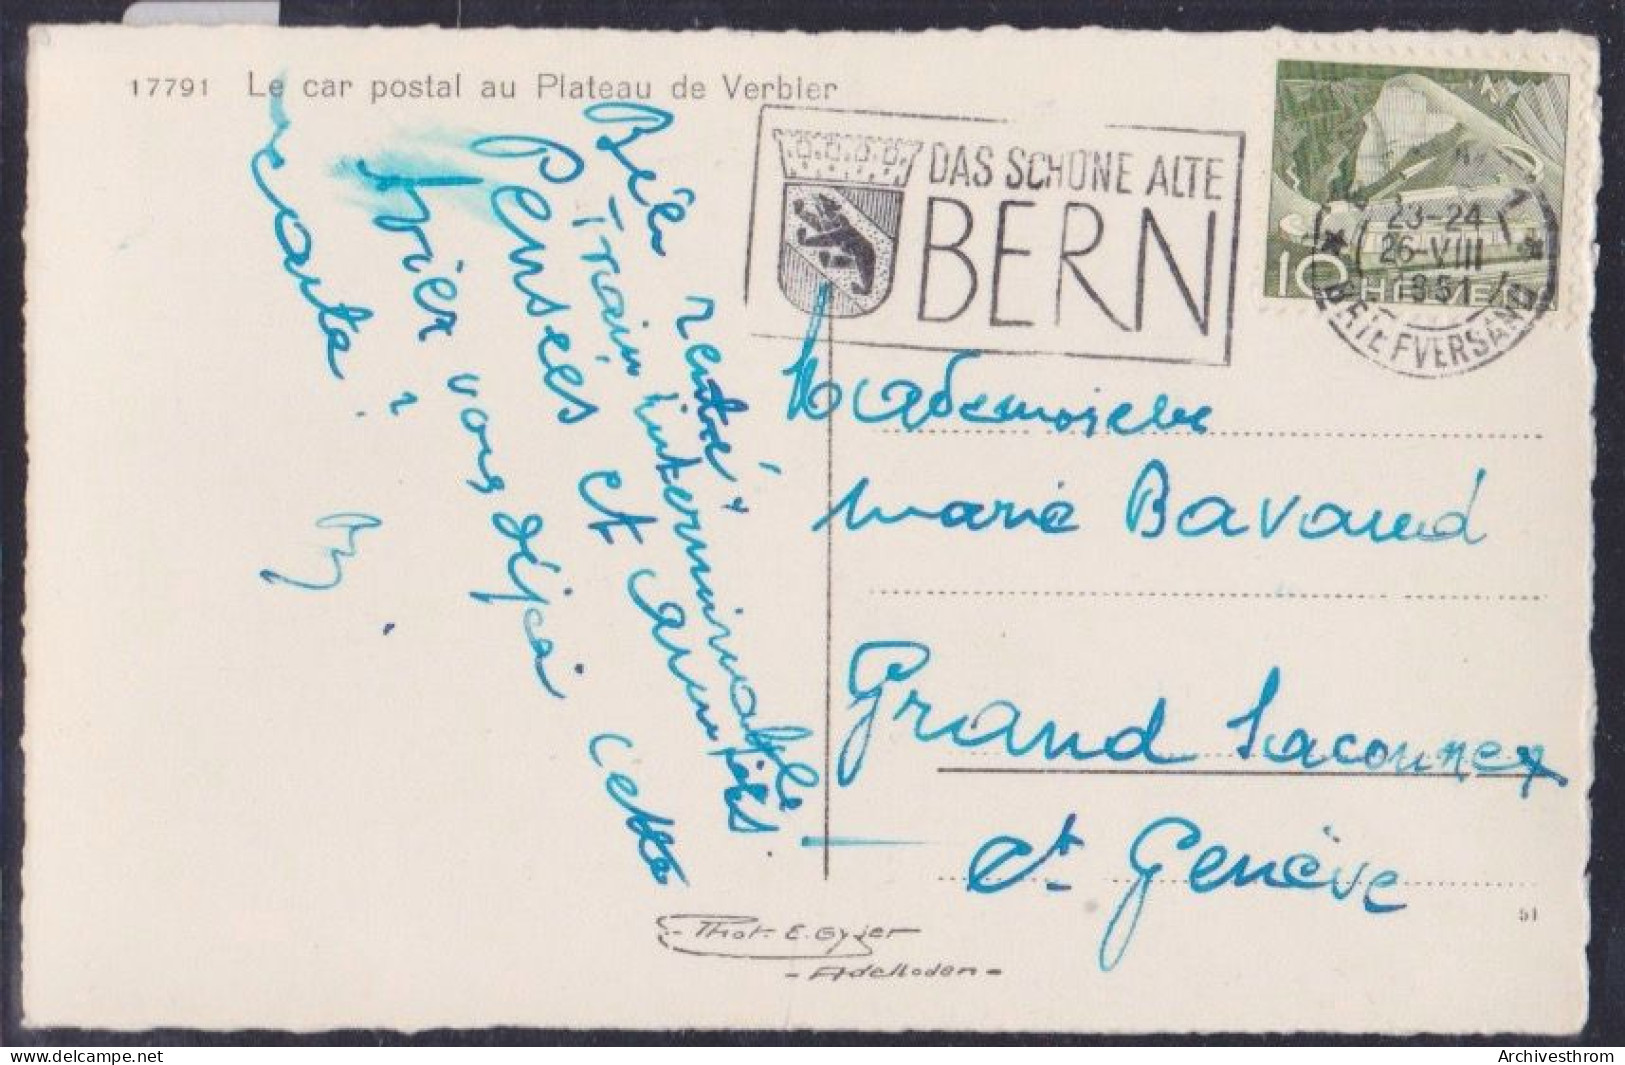 17791 Le car postal au Plateau de Verbier
DAS SCHÖNE ALTE
BERN
BERN 1
23-24
26-VIII
1951
BRIEFVERSAND
10 HELVETIA
Bien rentré
Train interminable
Pensées et amitiés.
Aviez vous déjà cette
carte ?
Mademoiselle
Marie Bavaud
Grand Saconnex
Ct. Genève
51
Phot. E. Gyger
- Adelboden -
Archivesthrom